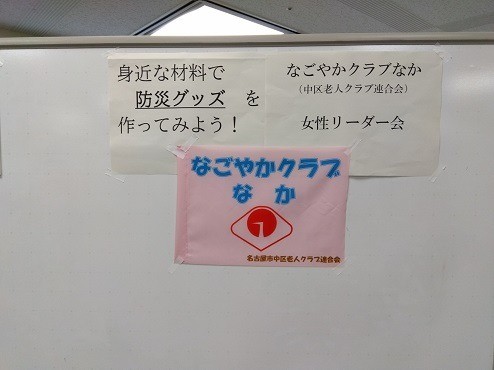 身近な材料で
防災グッズ を
作ってみよう！
なごやかクラブなか
（中区老人クラブ連合会）
女性リーダー会
なごやかクラブ
なか
名古屋市中区老人クラブ連合会